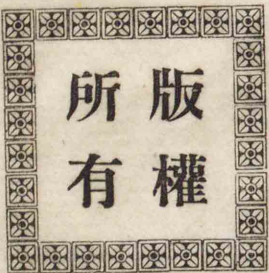 版權
所有